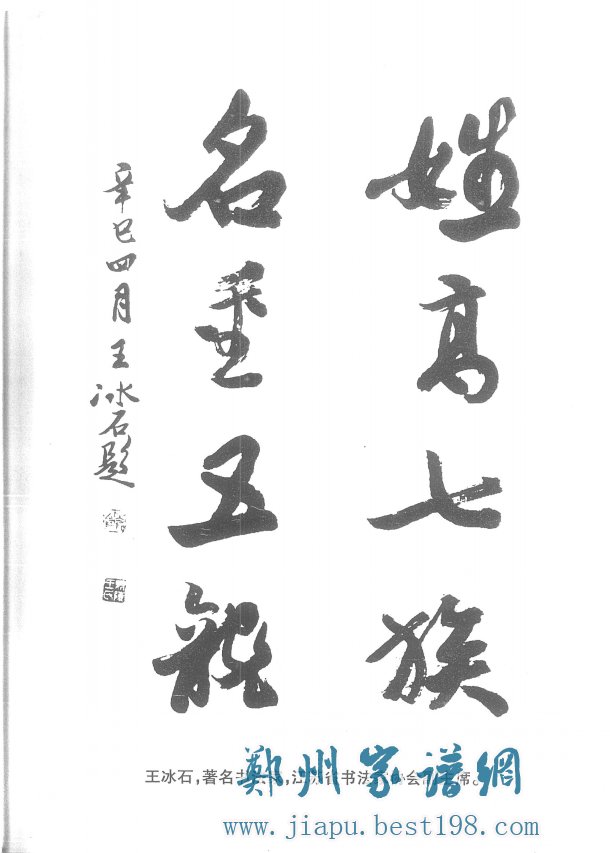 姓高七族
名垂五龍
辛巳四月王冰石题
王冰石,著名 省书法 会 席。
鄭州家谱網
www.jiapu.best198.com